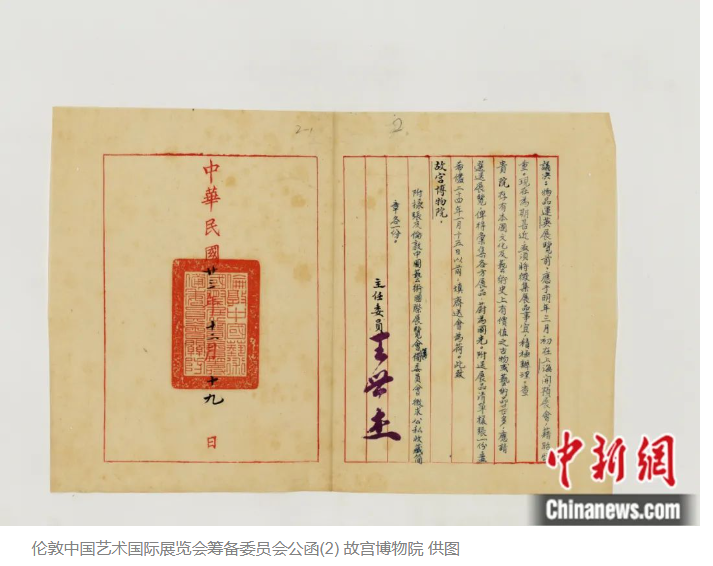 2-1
2
議決：物品運英展覽前，應于明年三月初在上海開預展會，藉昭
重。現在為期甚近，亟須將徵集展品事宜，積極辦理，查
貴院存有本國文化及藝術史上有價值之古物或藝術品至多，應請
選送展覽，俾得彙集各方展品，蔚為國光。附送展品清單樣張一份，並
希儘二十四年一月十五日以前，填齊送會為荷。此致
故宮博物院。
附樣張及倫敦中國藝術國際展覽會籌備委員會徵求公私收藏簡
章各一份。
主任委員 王世杰
中華民國廿三年十二月十九日
中新網
Chinanews.com
伦敦中国艺术国际展览会筹备委员会公函(2) 故宫博物院 供图